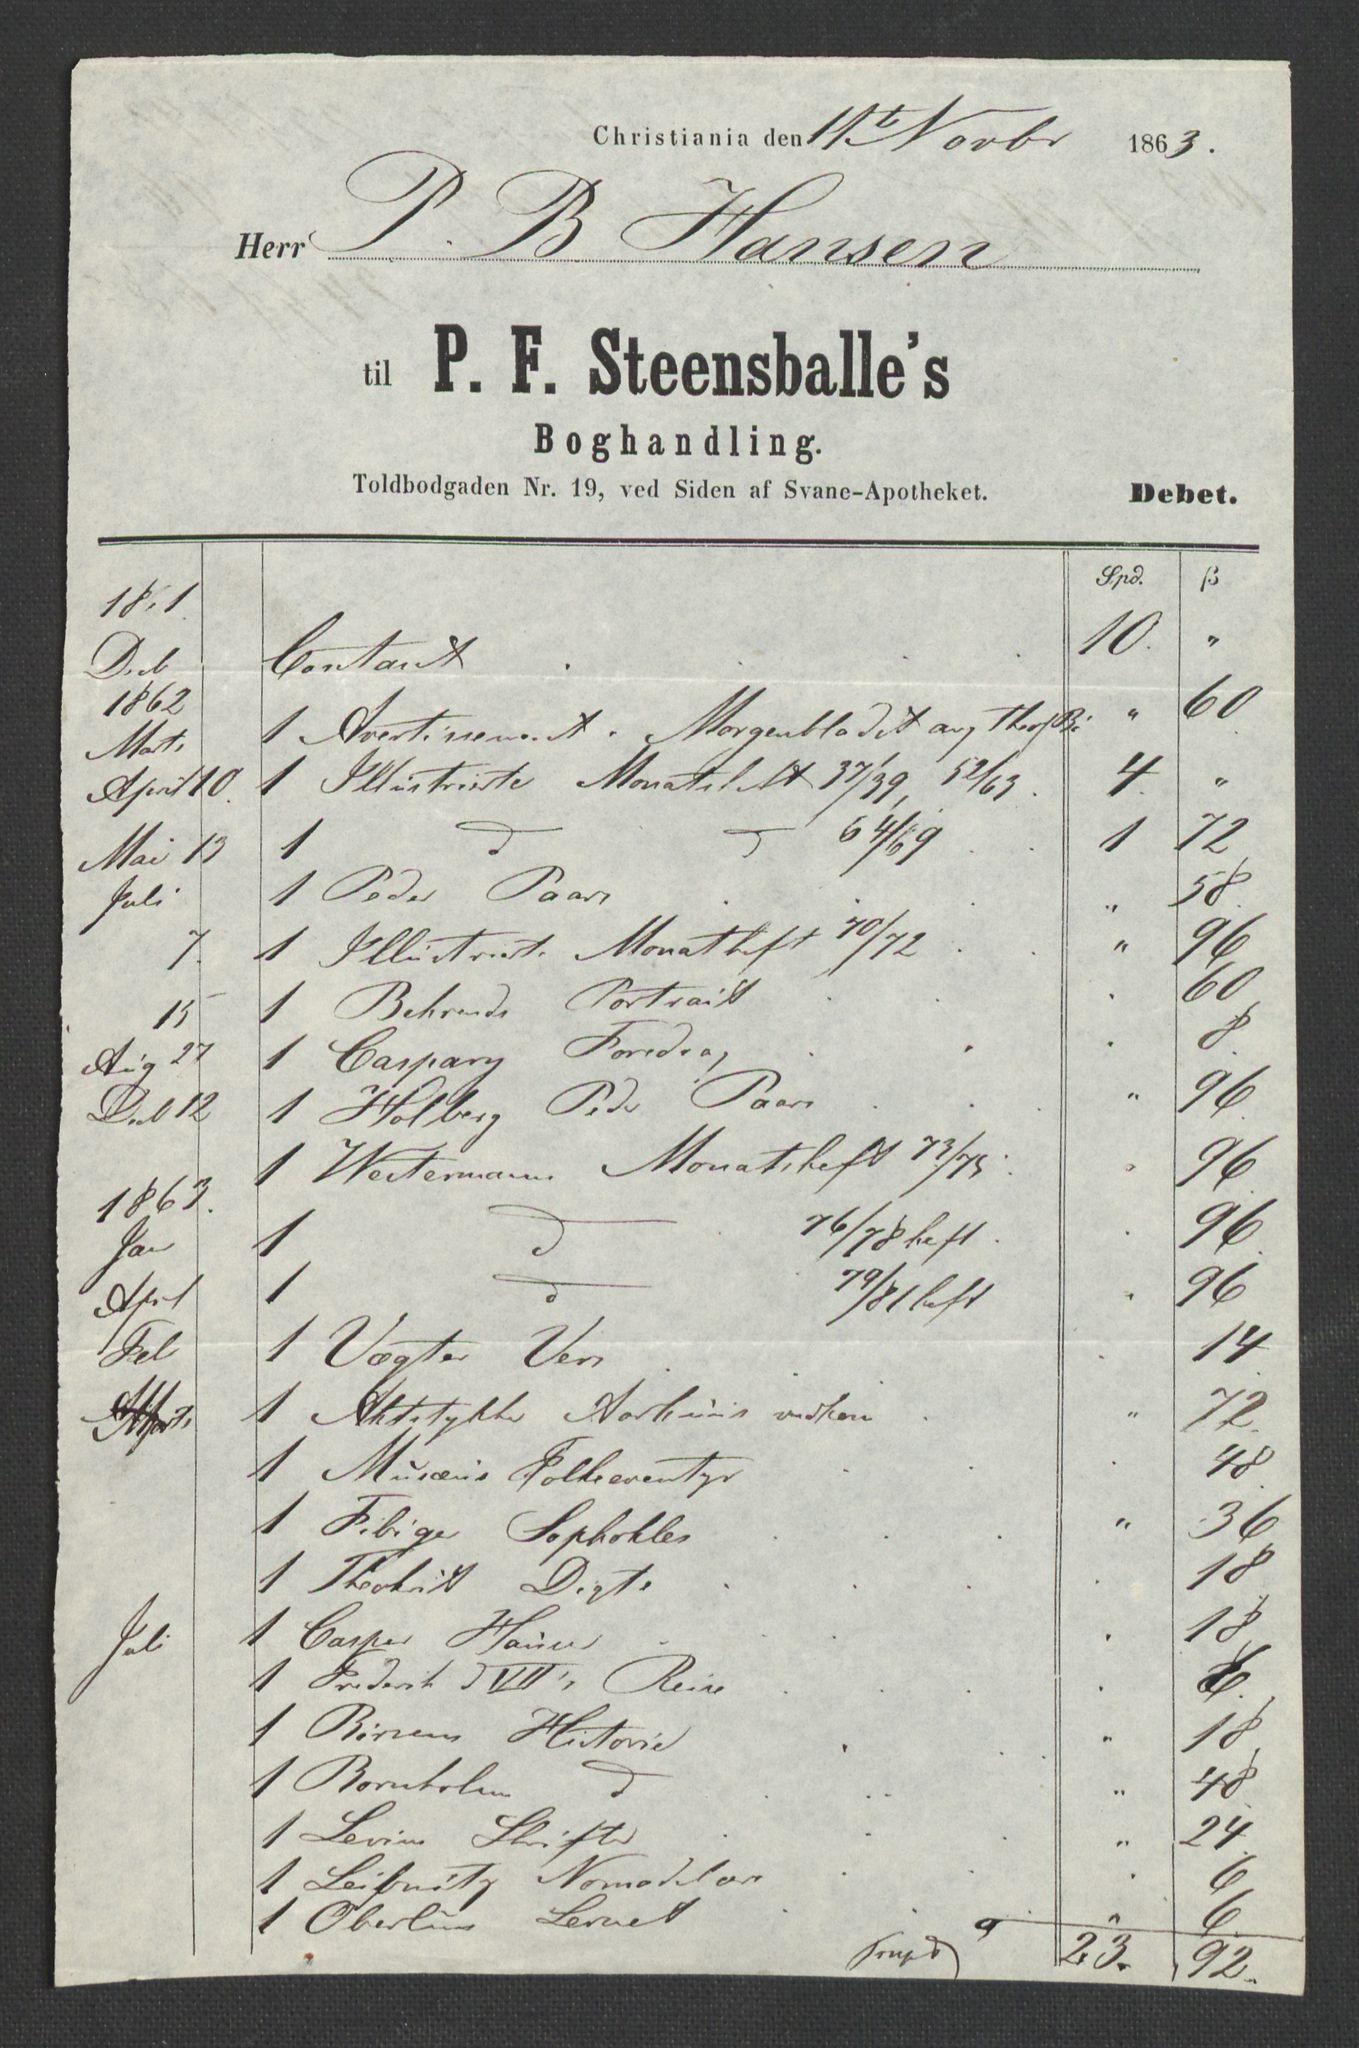 Christiania den 11t Novbr 1863.
Herr P. B Hansen
til P. F. Steensballe's
Boghandling.
Toldbodgaden Nr. 19, ved Siden af Svane-Apotheket. Debet.
Spd. β
18 1
Deb Contant 10. "
1862
Marts 1 Avertissement. Morgenbladet ang " 60
April 10. 1 Illustrirte Monatsheft 37/39, 52/63. 4. "
Mai 13 1 d d 64/69 1 72
Juli 1 Peder Paars " 58
7. 1 Illustrirte Monatheft 70/72 " 96
15 1 Behrends Portrait 60
Aug 27 1 Caspary Foredrag 8
Deb 12 1 Holberg Peder Paars " 96
1 Westermanns Monatsheft 73/75 96
1863.
Jan 1 d 76/78 heft. 96
April 1 d 79/81 heft 96
Feb 1 Vægter Vers 14
Marts 1 Aktstykker Aarhuus 72
1 Musæus Folkeeventyr 48
1 Fibiger Sophokles " 36
1 Theokrit Digte 18
Juli 1 Casper Hauser 18
1 Frederik d VII's Reise 6
1 Börsens Historie " 18
1 Bornholms d " 48
1 Levins Skrifter " 24
1 Leibnitz 6
1 Oberlins Levnet " 6
23. 92.